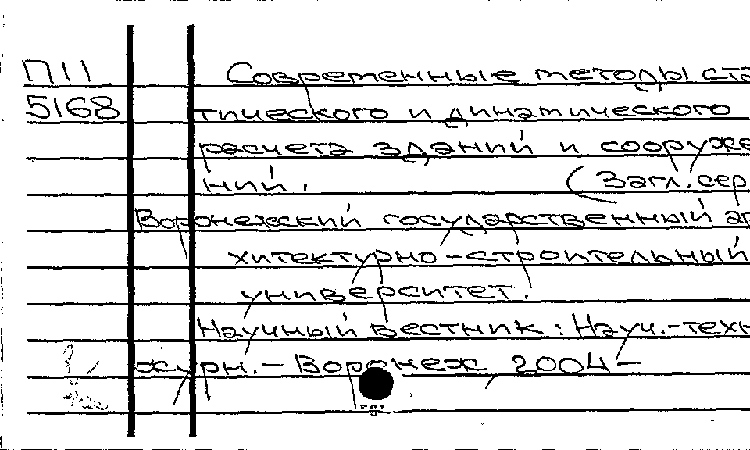 П11 Современные методы ста
5168 тического и динамического
расчета зданий и сооруже
ний. (Загл.сер
Воронежский государственный ар
хитектурно-строительный
университет.
Научный вестник: Науч.-техн
журн.- Воронеж, 2004-